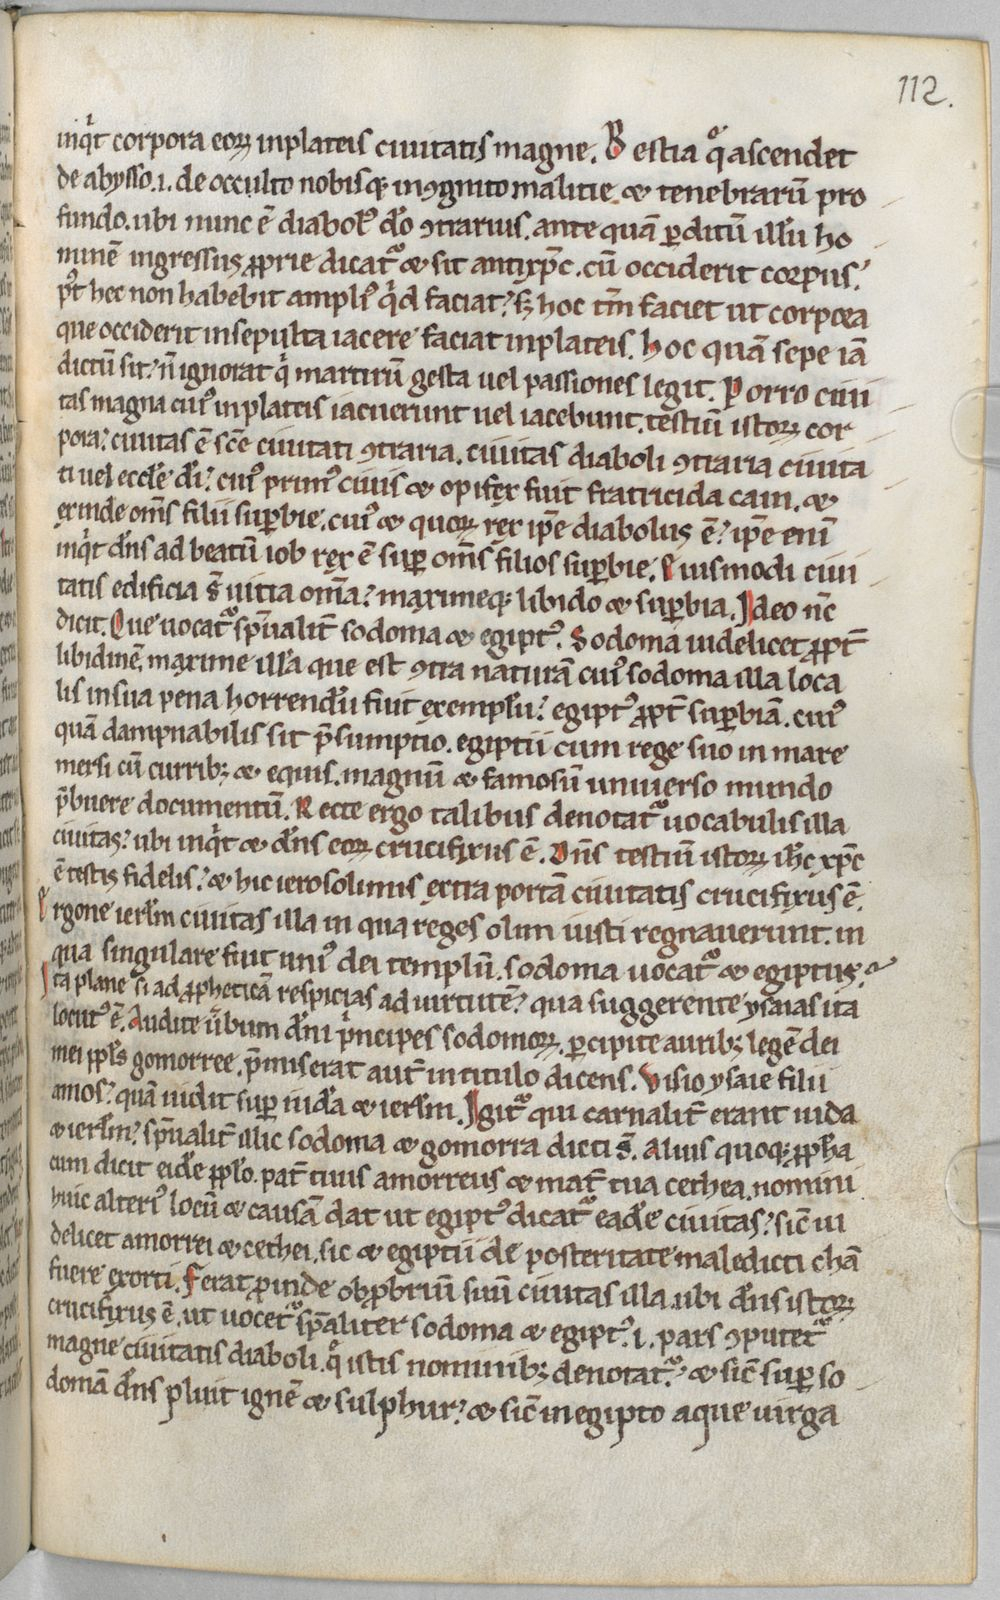 112.
inq̇t corpora eoꝝ inplateis ciuitatis magne. Bestia q̊ ascendet
de abysso .i. de occulto nobisq; inꝯgnito malitie ⁊ tenebrarū pro
fundo. ubi nunc ē diabol᷒ dō ꝯtrarius. ante quā ꝑditū illū ho
minē ingressus ꝓprie dicat᷑ ⁊ sit antixp̄c. cū occiderit corpus?
p᷒t hec non habebit ampli᷒ qd faciat? sꝫ hoc tm̄ faciet ut corpora
que occiderit insepulta iacere faciat inplateis. hoc quā sepe iā
dictū sit? n̄ ignorat q̇ martirū gesta uel passiones legit. Porro ciui
tas magna cui᷒ inplateis iacuerunt uel iacebunt. testiū istoꝝ cor
pora? ciuitas ē scē ciuitati ꝯtraria. ciuitas diaboli ꝯtraria ciuita
ti uel ecclē dī? cui᷒ prim᷒ ciuis ⁊ opifex fuit fratricida cain. ⁊
exinde om̄s filii suꝑbie. cui᷒ ⁊ quoꝝ rex ip̄e diabolus ē? ip̄e enī
inq̇t dn̄s ad beatū iob rex ē suꝑ om̄s filios suꝑbie. Eiusmodi ciui
tatis edificia s̄ uitia om̄a? maximeq; libido ⁊ suꝑbia. Ideo nc̄
dicit. Que uocat᷑ sp̄ualit̄ sodoma ⁊ egipt᷒. Sodoma uidelicet ꝓpt̄
libidinē, maxime illa que est ꝯtra naturā cui᷒ sodoma illa loca
lis insua pena horrendū fuit exemplū? egipt᷒ ꝓpt̄ suꝑbiā. cui᷒
quā dampnabilis sit p̄sumptio. egiptii cum rege suo in mare
mersi cū curribꝫ ⁊ equis. magnū ⁊ famosū uniuerso mundo
p̄buere documentū. Recte ergo talibus denotat᷑ uocabulis illa
ciuitas? ubi inq̇t ⁊ dn̄s eoꝝ crucifixus ē. Dn̄s testiū istoꝝ ih̄c xp̄c
ē testis fidelis? ⁊ hic ierosolimis extra portā ciuitatis crucifixus ē.
Ergone ierl̄m ciuitas illa in qua reges olim iusti regnauerunt. in
qua singulare fuit uni᷒ dei templū. sodoma uocat᷑ ⁊ egiptus?
Ita plane si ad ꝓpheticā respicias aduirtutē? qua suggerente ysaias ita
locut᷒ ē. Audite ūbum dn̄i ṗncipes sodomoꝝ. ꝑcipite auribꝫ legē dei
mei ppl̄s gomorree. p̄miserat aut̄ in titulo dicens. Visio ysaie filii
amos? quā uidit suꝑ iudā ⁊ ierl̄m. Igit᷑ qui carnalit̄ erant iuda
⁊ ierl̄m? sp̄ualit̄ illic sodoma ⁊ gomorra dicti s̄. Alius quoq; ꝓph̄a
cum dicit eidē ppl̄o. pat̄ tuus amorreus ⁊ mat̄ tua cethea. nomini
huic alteri᷒ locū ⁊ causā dat ut egipt᷒ dicat᷑ eadē ciuitas? sic̄ ui
delicet amorrei ⁊ cethei. sic ⁊ egiptii de posteritate maledicti chā
fuere exorti. Ferat ꝓinde obꝓbriū suū ciuitas illa. ubi dn̄s istoꝝ
crucifixus ē. ut uocet᷑ sp̄aliter sodoma ⁊ egipt᷒ .i. pars ꝯputet᷑
magne ciuitatis diaboli. q̊ istis nominibꝫ denotat᷑? ⁊ sic̄ suꝑ so
domā dn̄s pluit ignē ⁊ sulphur? ⁊ sic̄ in egipto aque uirga